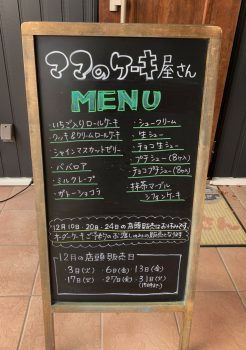 ママのケーキ屋さん
MENU
・いちご入りロールケーキ
・クッキー&クリームロールケーキ
・シャインマスカットゼリー
・ババロア
・ミルクレープ
・ガトーショコラ
・シュークリーム
・生シュー
・チョコ生シュー
・プチシュー(8ヶ入)
・チョコプチシュー(8ヶ入)
・抹茶マーブル
シフォンケーキ
12月10日・20日・24日の店頭販売はお休みです。
12月の店頭販売日
・3日(火)・6日(金)・13日(金)
・17日(火)・27日(金)・31日(火)